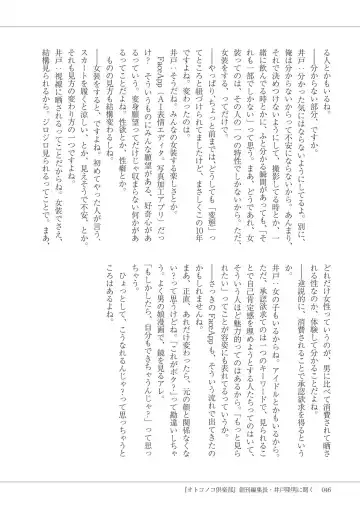 る人とかもいるね。
――分からない部分、ですか。
井戸：分かった気にはならないようにしてるよ。別に、
俺は分からないからって不安にならないから。あんまり、
それで決めつけないようにして、撮影してる時とか、一
緒に飲んでる時とかに、ふと分かる瞬間があっても、「そ
れも一部でしかない」って思う。まあ、どうであれ、女
装っての は、その人の「一つの特性でしかないから。ただ、
女装をする、ってのは。
――やっぱり、ちょっと前までは、どうしても「変態」っ
てところと紐づけられてましたけど、まさしくこの10年
ですよね、変わったのは。
井戸：そうだね。みんなの女装する楽しさとか。
FaceApp〔ＡＩ表情エディタ。写真加工アプリ〕だっ
け？　そういうものにみんな願望がある、好奇心があ
るっていう。変身願望ってだけじゃ収まらない何かがあ
るってことだよね。性欲とか、性癖とか。
――女装をすると、ですよね。初めてやった人が言う、
ものの見方も結構変わるしね。
スカートを履くと涼しい、とか、見えそうで不安、とか。
それも見方の変わり方の一つですよね。
井戸：視線に晒されるってことだからね。女装でさえ、
結構見られるから。ジロジロ見られるってことで、まあ、
どれだけ女性っていうのが、男に比べて消費されて晒さ
れる性なのか、体験して分かることだよね。
――逆説的に、消費されることで承認欲求を得るという
井戸：女の子もいるからね。アイドルとかもいるから。
ただ、承認欲求ってのは一つのキーワードで、見られるこ
とで自己肯定感を埋めようとする人たちってのはいて、
そういう人ほど魅力的ってのはあるから。「もっと見ら
れたい」ってことが容姿にも表れてるっていうか。
――さっきのFaceAppも、そういう流れで出てきたの
かもしれませんね。
まあ、正直、あれだけ変わったら、元の顔と関係なくな
い？って思うけどね。「これがボク？」って勘違いしちゃ
う。よく男の娘漫画で、鏡を見るアレ。
「もしかしたら、自分もできちゃうんじゃ？」って思っ
ちゃう。
ひょっとして、こうなれるんじゃ？って思っちゃうと
ころはあるよね。
『オトコノコ倶楽部』創刊編集長・井戸隆明に聞く　046